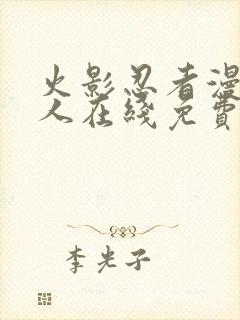 火影忍者漫
人在线免费
李光子